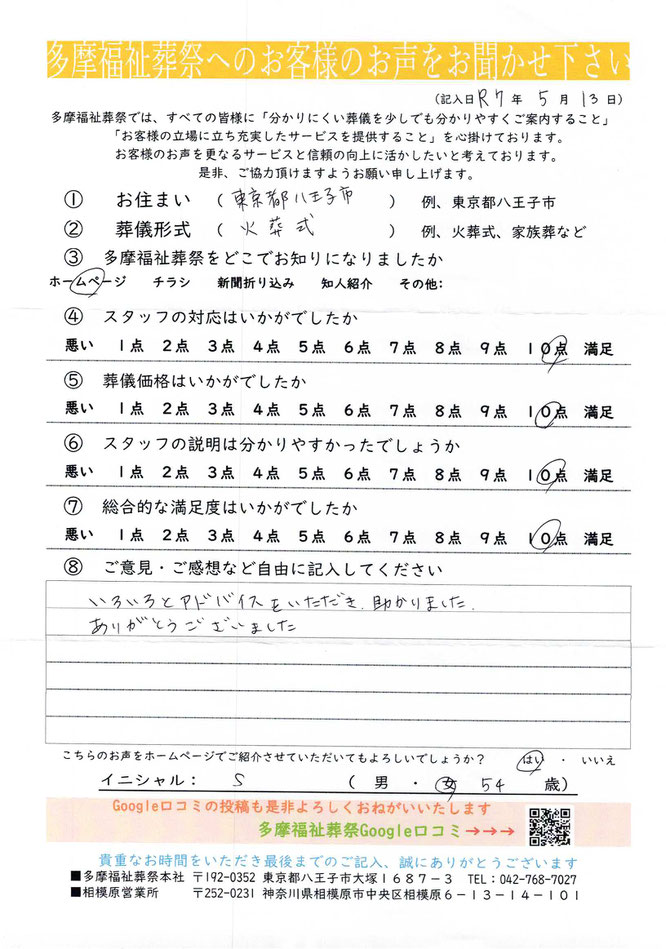 多摩福祉葬祭へのお客様のお声をお聞かせ下さい
(記入日R7年 5月 13日)
多摩福祉葬祭では、すべての皆様に「分かりにくい葬儀を少しでも分かりやすくご案内すること」
「お客様の立場に立ち充実したサービスを提供すること」を心掛けております。
お客様のお声を更なるサービスと信頼の向上に活かしたいと考えております。
是非、ご協力頂けますようお願い申し上げます。
① お住まい (東京都八王子市) 例、東京都八王子市
② 葬儀形式 (火葬式) 例、火葬式、家族葬など
③ 多摩福祉葬祭をどこでお知りになりましたか
ホームページ チラシ 新聞折り込み 知人紹介 その他:
④ スタッフの対応はいかがでしたか
悪い 1点 2点 3点 4点 5点 6点 7点 8点 9点 10点 満足
⑤ 葬儀価格はいかがでしたか
悪い 1点 2点 3点 4点 5点 6点 7点 8点 9点 10点 満足
⑥ スタッフの説明は分かりやすかったでしょうか
悪い 1点 2点 3点 4点 5点 6点 7点 8点 9点 10点 満足
⑦ 総合的な満足度はいかがでしたか
悪い 1点 2点 3点 4点 5点 6点 7点 8点 9点 10点 満足
⑧ ご意見・ご感想など自由に記入してください
いろいろとアドバイスをいただき、助かりました。
ありがとうございました
こちらのお声をホームページでご紹介させていただいてもよろしいでしょうか? はい ・ いいえ
イニシャル: S (男・女 54 歳)
Google口コミの投稿も是非よろしくおねがいいたします
多摩福祉葬祭Google口コミ→→→
貴重なお時間をいただき最後までのご記入、誠にありがとうございます
■多摩福祉葬祭本社 〒192-0352 東京都八王子市大塚1687-3 TEL:042-768-7027
■相模原営業所 〒252-0231 神奈川県相模原市中央区相模原6-13-14-101